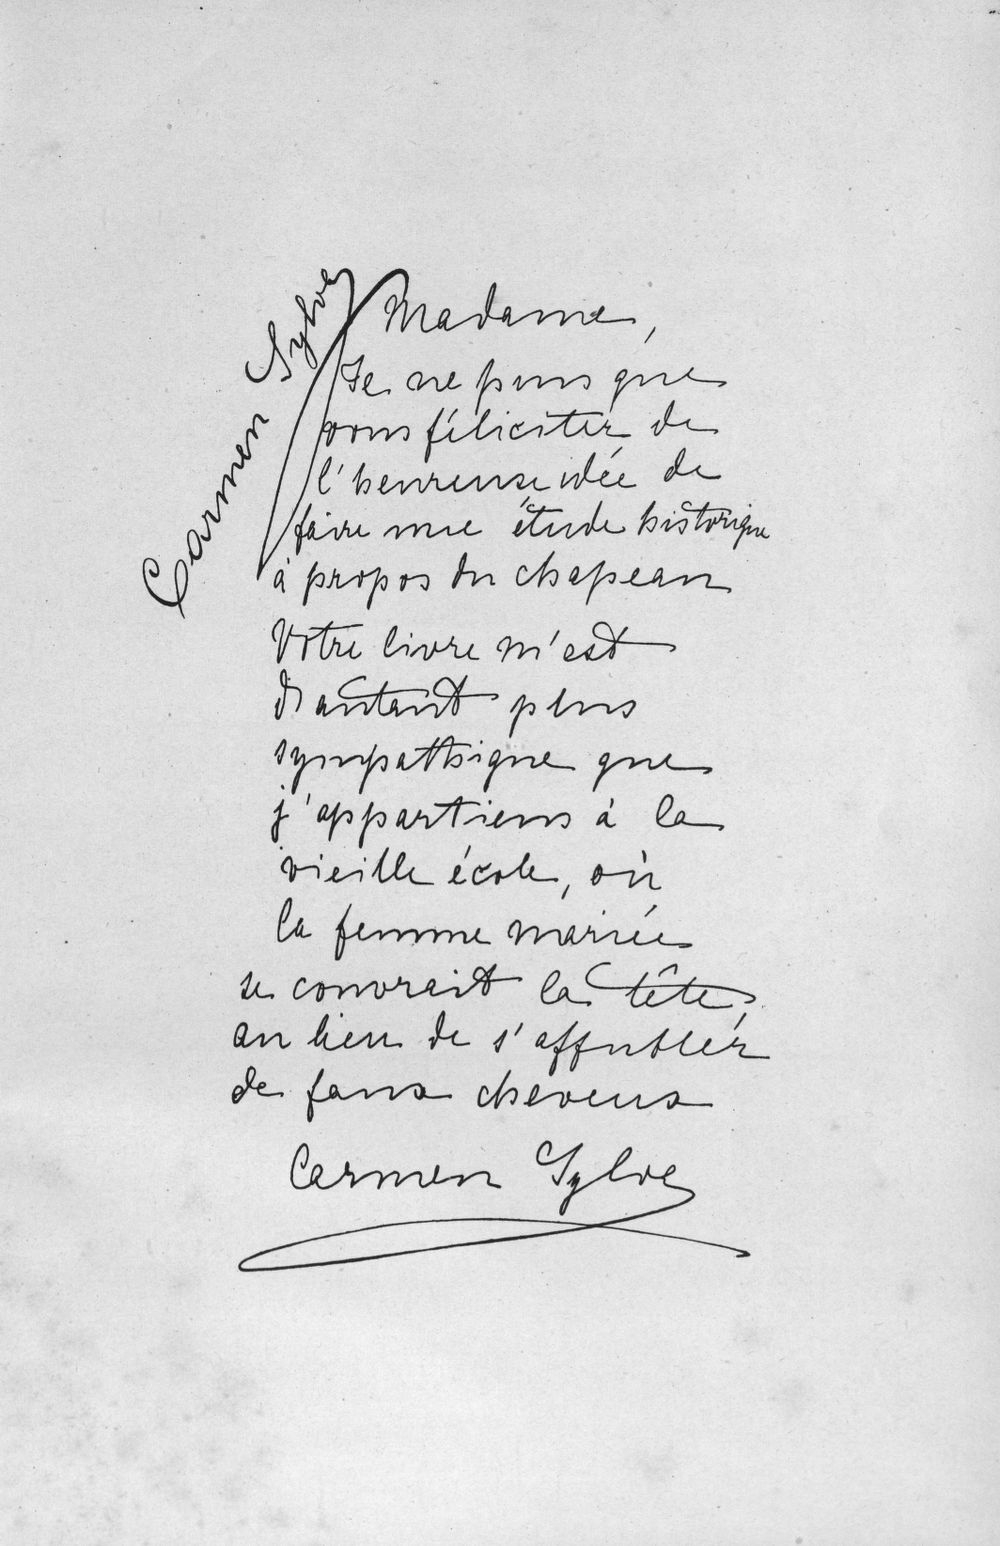 Carmen Sylva
Madame,
Je ne puis que
vous féliciter de
l'heureuse idée de
faire une étude historique
à propos du chapeau
Votre livre m'est
d'autant plus
sympathique que
j'appartiens à la
vieille école, où
la femme mariée
se couvrait la tête,
au lieu de s'affubler
de faux cheveux
Carmen Sylva